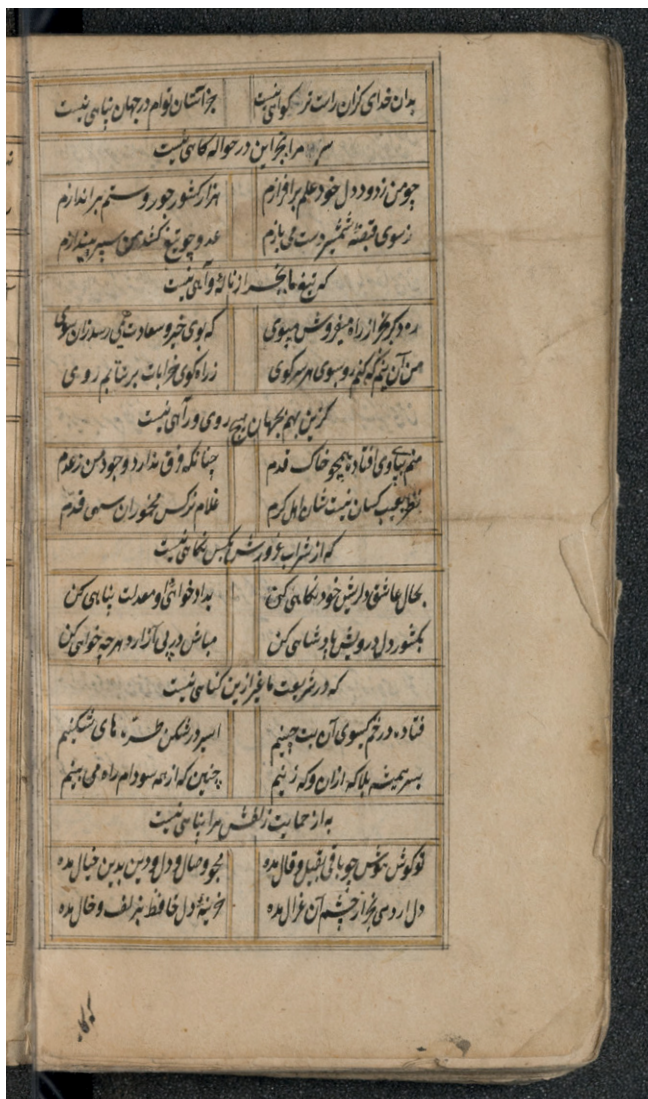 بدان خدای کزان راست تر کواهی نیست جز آستان توام در جهان پناهی نیست
سر مرا بجز این در حواله کاهی نیست
چو من ز دود دل خود علم برافرازم هزار کشور جور و ستم براندازم
ز سوی قبضهٔ شمشیر دست می بازم عدو چو تیغ کشد من سپر بیندازم
که تیغ ما بجز از ناله و آهی نیست
دکر بجز از راه میفروش که بوی خیر و سعادت همی رسد زان سوی
من آن نیم که کنم رو بسوی هر سر کوی ز راه کوی خرابات برنتابم روی
کزین بهم بجهان هیچ روی و راهی نیست
منم بپای وی افتاده همچو خاک قدم چنانکه فرق ندارد وجود من ز عدم
نظر بعیب کسان نیست شان اهل کرم غلام نرکس مخموران سهی قدم
که از شراب غرورش بکس نکاهی نیست
بحال عاشق دلریش خود نکاهی کن بداد خواهی او معدلت پناهی کن
بکشور دل درویش شاهی کن مباش در پی آزار و هر چه خواهی کن
که در شریعت ما غیر ازین کناهی نیست
فتاده در خم کیسوی آن بت چینم اسیر در شکن طره های مشکینم
بسر همیشه بلا که ازان و که زینم چنین که از همه سو دام راه می بینم
به از حمایت زلفش مرا پناهی نیست
تو کوش هوش چو باقی بقیل و قال مده مجو وصال و دل و دین بدین خیال مده
دل ار دهی بجز از چشم آن غزال مده خزینهٔ دل حافظ بزلف و خال مده